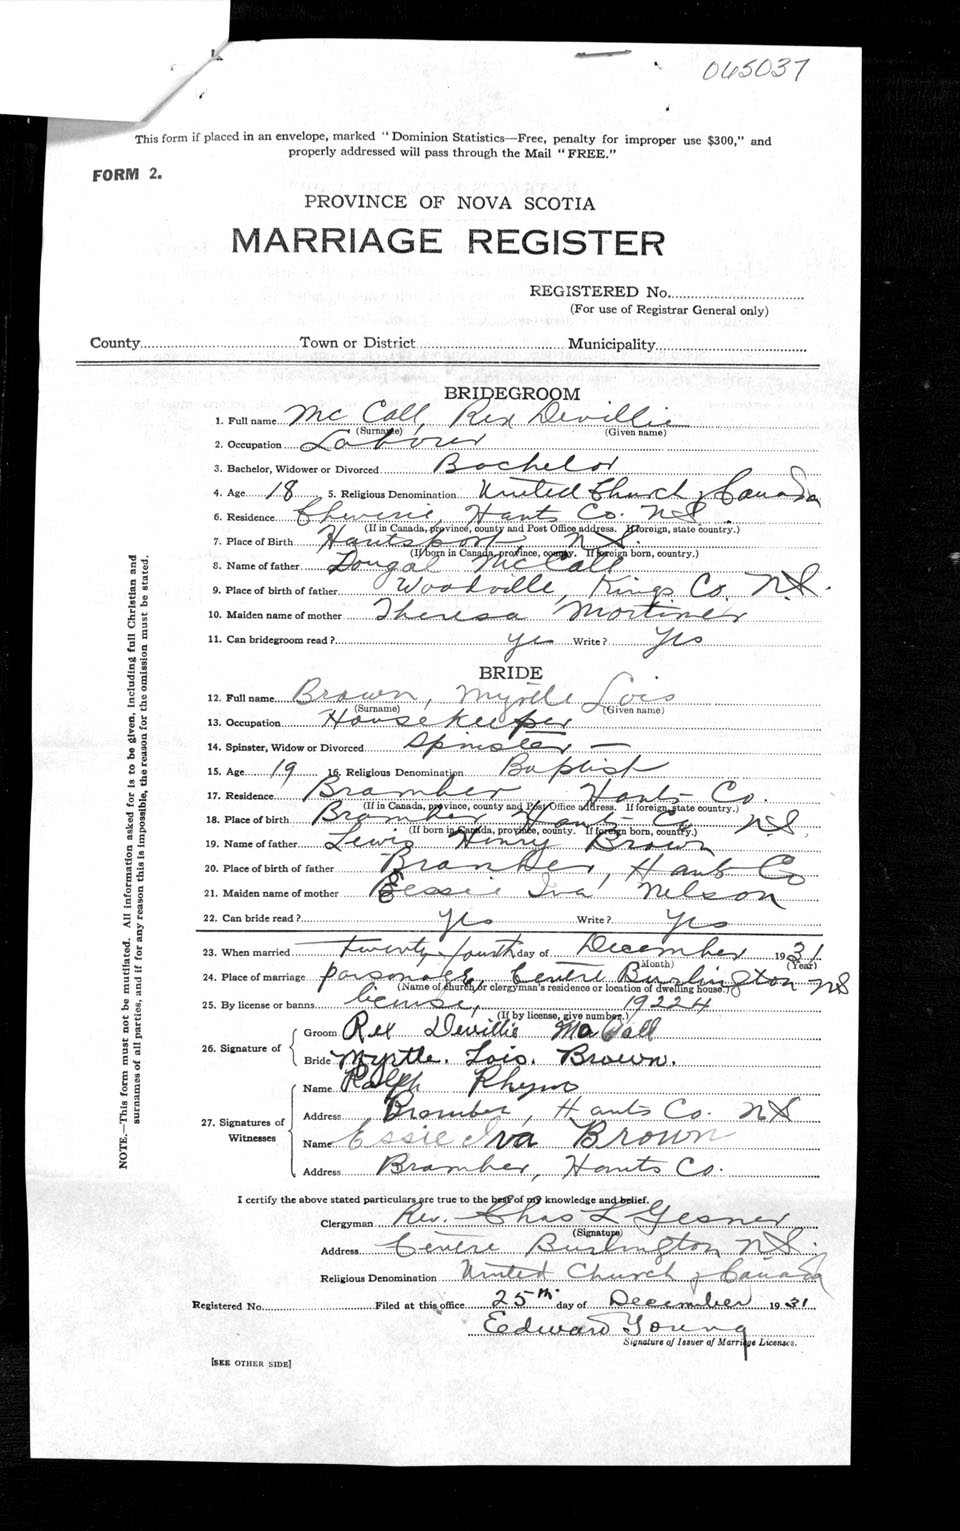 065037
This form if placed in an envelope, marked "Dominion Statistics—Free, penalty for improper use $300," and
properly addressed will pass through the Mail "FREE."
FORM 2.
PROVINCE OF NOVA SCOTIA
MARRIAGE REGISTER
REGISTERED No.
(For use of Registrar General only)
County Town or District Municipality
BRIDEGROOM
1. Full name Mc Call, Rex Devillie
(Surname) (Given name)
2. Occupation Labourer
3. Bachelor, Widower or Divorced Bachelor
4. Age 18 5. Religious Denomination United Church of Canada
6. Residence Cheverie, Hants Co. N.S.
(If in Canada, province, county and Post Office address. If foreign, state country.)
7. Place of Birth Hantsport N.S.
(If born in Canada, province, county. If foreign born, country.)
8. Name of father Dougal McCall
9. Place of birth of father Woodville, Kings Co. N.S.
10. Maiden name of mother Theresa Mortimer
11. Can bridegroom read? yes Write? Yes
BRIDE
12. Full name Brown, Myrtle Lois
(Surname) (Given name)
13. Occupation Housekeeper
14. Spinster, Widow or Divorced Spinster —
15. Age 19 16. Religious Denomination Baptist
17. Residence Bramber Hants Co.
(If in Canada, province, county and Post Office address. If foreign, state country.)
18. Place of birth Bramber Hants Co NS
(If born in Canada, province, county. If foreign born, country.)
19. Name of father Lewis Henry Brown
20. Place of birth of father Bramber, Hants Co
21. Maiden name of mother Essie Iva Nelson
22. Can bride read? Yes Write? Yes
23. When married twenty-fourth day of December 1931
(Month) (Year)
24. Place of marriage parsonage, Centre Burlington NS
(Name of church, or clergyman's residence or location of dwelling house.)
25. By license or banns license, 19224
(If by license, give number.)
26. Signature of Groom Rex Devillie MacCall
Bride Myrtle. Lois. Brown.
27. Signatures of Witnesses Name Ralph Rhyno
Address Bramber, Hants Co. NS
Name Essie Iva Brown
Address Bramber, Hants Co.
I certify the above stated particulars are true to the best of my knowledge and belief.
Clergyman Rev. Chas L Gesner
(Signature)
Address Centre Burlington N.S.
Religious Denomination United Church of Canada
Registered No. Filed at this office 25th day of December 1931
Edward Young
Signature of Issuer of Marriage Licenses.
[SEE OTHER SIDE]
NOTE.—This form must not be mutilated. All information asked for is to be given, including full Christian and
surnames of all parties, and if for any reason this is impossible, the reason for the omission must be stated.